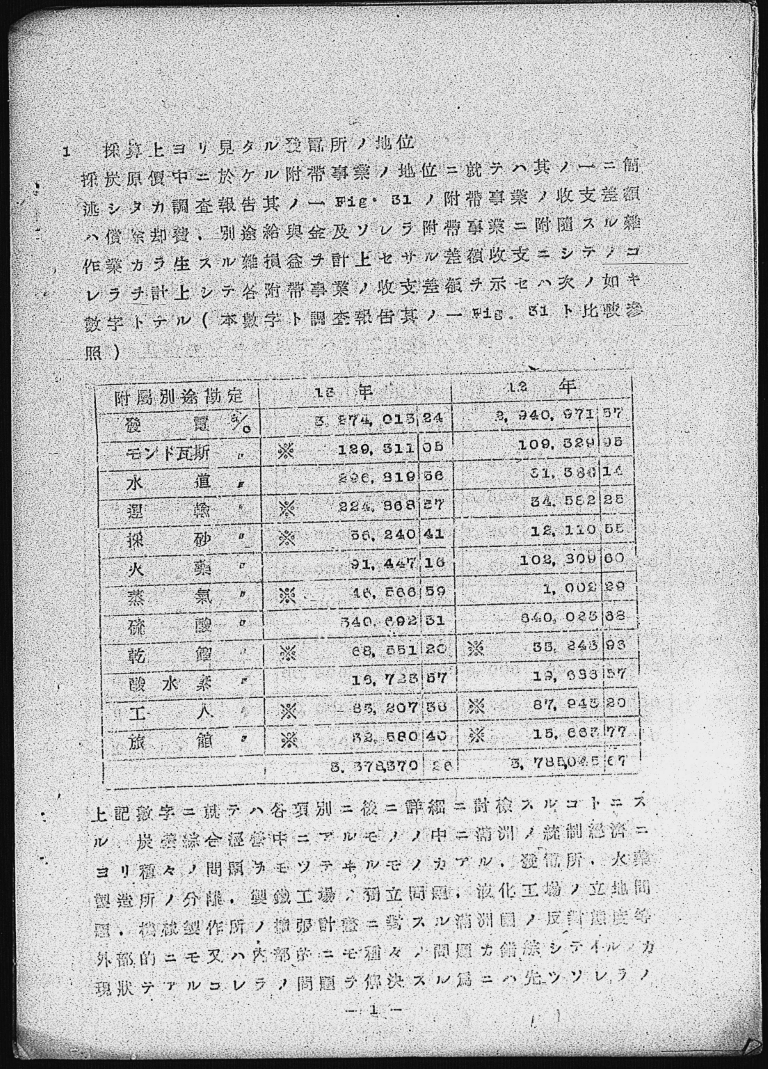 1 採算上ヨリ見タル發電所ノ地位
採炭原價中ニ於ケル附帶事業ノ地位ニ就テハ其ノ一ニ簡
述シタカ調査報告其ノ一 Fig. 31 ノ附帶事業ノ收支差額
ハ償却費、別途給與金及ソレラ附帶事業ニ附隨スル雜
作業カラ生スル雜損益ヲ計上セサル差額收支ニシテノコ
レラヲ計上シテ各附帶事業ノ收支差額ヲ示セハ次ノ如キ
數字トテル(本數字ト調査報告其ノ一 Fig. 31 ト比較參
照)
附屬別途勘定 13 年 12 年
發電 % 3,274,013 24 2,940,971 57
モンド瓦斯 〃 ※ 129,311 05 109,329 95
水道 〃 296,819 36 31,386 14
運輸 〃 ※ 224,868 27 34,552 25
採砂 〃 ※ 36,240 41 12,110 55
火藥 〃 91,447 16 102,309 60
蒸氣 〃 ※ 46,566 59 1,002 29
硫酸 〃 340,692 31 640,025 68
乾餾 〃 ※ 68,551 20 ※ 35,243 93
酸水素 〃 16,723 57 19,636 57
工人 〃 ※ 83,207 36 ※ 87,943 20
旅館 〃 ※ 32,580 40 ※ 15,663 77
3,378,370 26 3,785,045 67
上記數字ニ就テハ各項別ニ後ニ詳細ニ討檢スルコトニス
ル 炭礦綜合經營中ニアルモノノ中ニ滿洲ノ統制經濟ニ
ヨリ種々ノ問題ヲモツテキルモノカアル、發電所、火藥
製造所ノ分離、製鐵工場ノ獨立問題、液化工場ノ立地問
題、機械製作所ノ擴張計畫ニ對スル滿洲國ノ反對態度等
外部的ニモ又ハ內部的ニモ種々ノ問題カ錯綜シテイルノカ
現狀テアルコレラノ問題ヲ解決スル爲ニハ先ツソレラノ
— 1 —